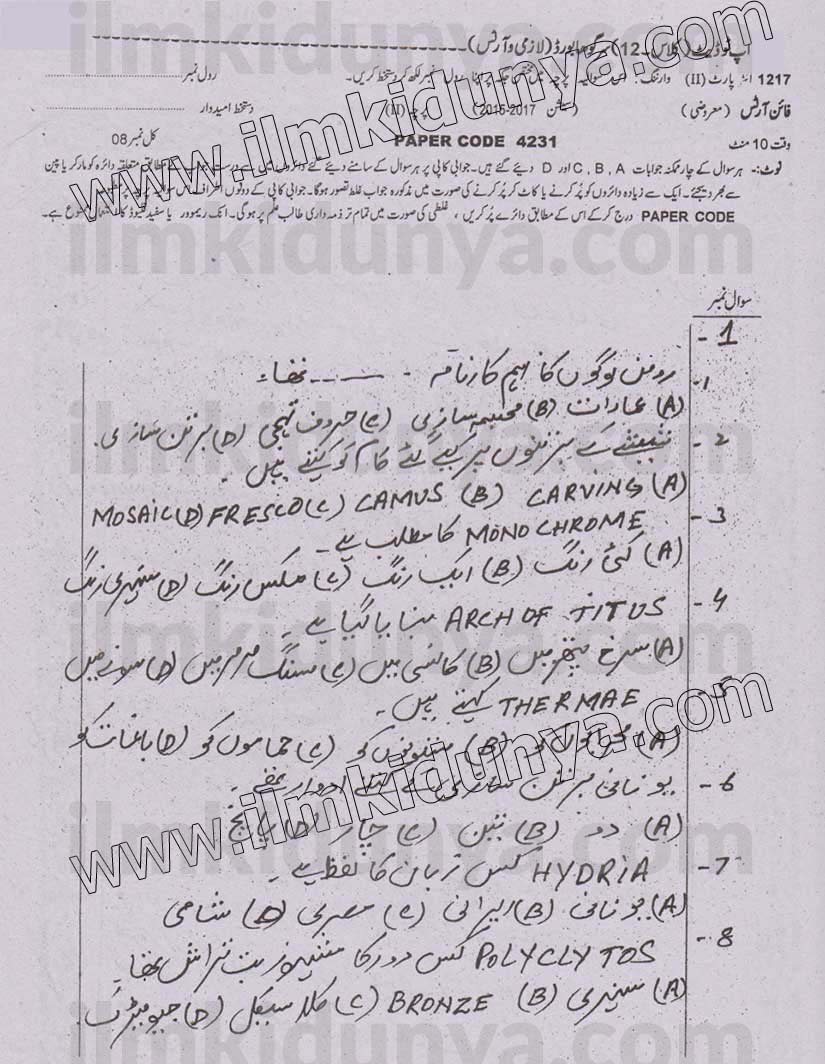 اَپ ٹو ڈیٹ (کلاس -12) بورڈ (لازمی و آرٹس)
1217 انٹر پارٹ (II) وارننگ: اس سوالیہ پرچہ رول نمبر لکھ کر دستخط کریں۔ رول نمبر
فائن آرٹس (معروضی) (سیشن 2015-2017) پرچہ (II) دستخط امیدوار
وقت 10 منٹ PAPER CODE 4231 کل نمبر 08
نوٹ:- ہر سوال کے چار ممکنہ جوابات C, B, A اور D دیئے گئے ہیں۔ جوابی کاپی پر ہر سوال کے سامنے دیئے گئے دائروں میں سے درست جواب کے مطابق متعلقہ دائرہ کو مارکر یا پین
سے بھر دیجئے۔ ایک سے زیادہ دائروں کو پُر کرنے یا کاٹ کر پُر کرنے کی صورت میں مذکورہ جواب غلط تصور ہوگا۔ جوابی کاپی کے دونوں اطراف اس سوالیہ پرچہ پر
PAPER CODE درج کر کے اس کے مطابق دائرے پُر کریں، غلطی کی صورت میں تمام تر ذمہ داری طالب علم پر ہوگی۔ انک ریموور یا سفید فلیوڈ کا استعمال ممنوع ہے۔
سوال نمبر
1-
1- رومن لوگوں کا اہم کارنامہ ---- تھا۔
(A) عمارات (B) مجسمہ سازی (C) حروف تہجی (D) برتن سازی
2- شیشے کے کیے گئے کام کو کہتے ہیں۔
(A) CARVING (B) CAMUS (C) FRESCO (D) MOSAIC
3- MONOCHROME کا مطلب ہے۔
(A) کئی رنگ (B) ایک رنگ (C) مکس رنگ (D) سنہری رنگ
4- ARCH OF TITUS بنایا گیا ہے۔
(A) سرخ پتھر میں (B) کانسی میں (C) سنگ مرمر میں (D) سونے میں
5- THERMAE کہتے ہیں۔
(A) محرابوں کو (B) ستونوں کو (C) حماموں کو (D) باغات کو
6- یونانی برتن سازی کے کتنے ادوار تھے۔
(A) دو (B) تین (C) چار (D) پانچ
7- HYDRIA کس زبان کا لفظ ہے۔
(A) یونانی (B) ایرانی (C) مصری (D) شامی
8- POLYCLYTOS کس دور کا مشہور بت تراش تھا۔
(A) سنہری (B) BRONZE (C) کلاسیکل (D) جیومیٹرک
www.ilmkidunya.com
ilmkidunya.com
ilmkidunya.com
ilmkidunya.com
www.ilmkidunya.com
ilmkidunya.com
ilmkidunya.com